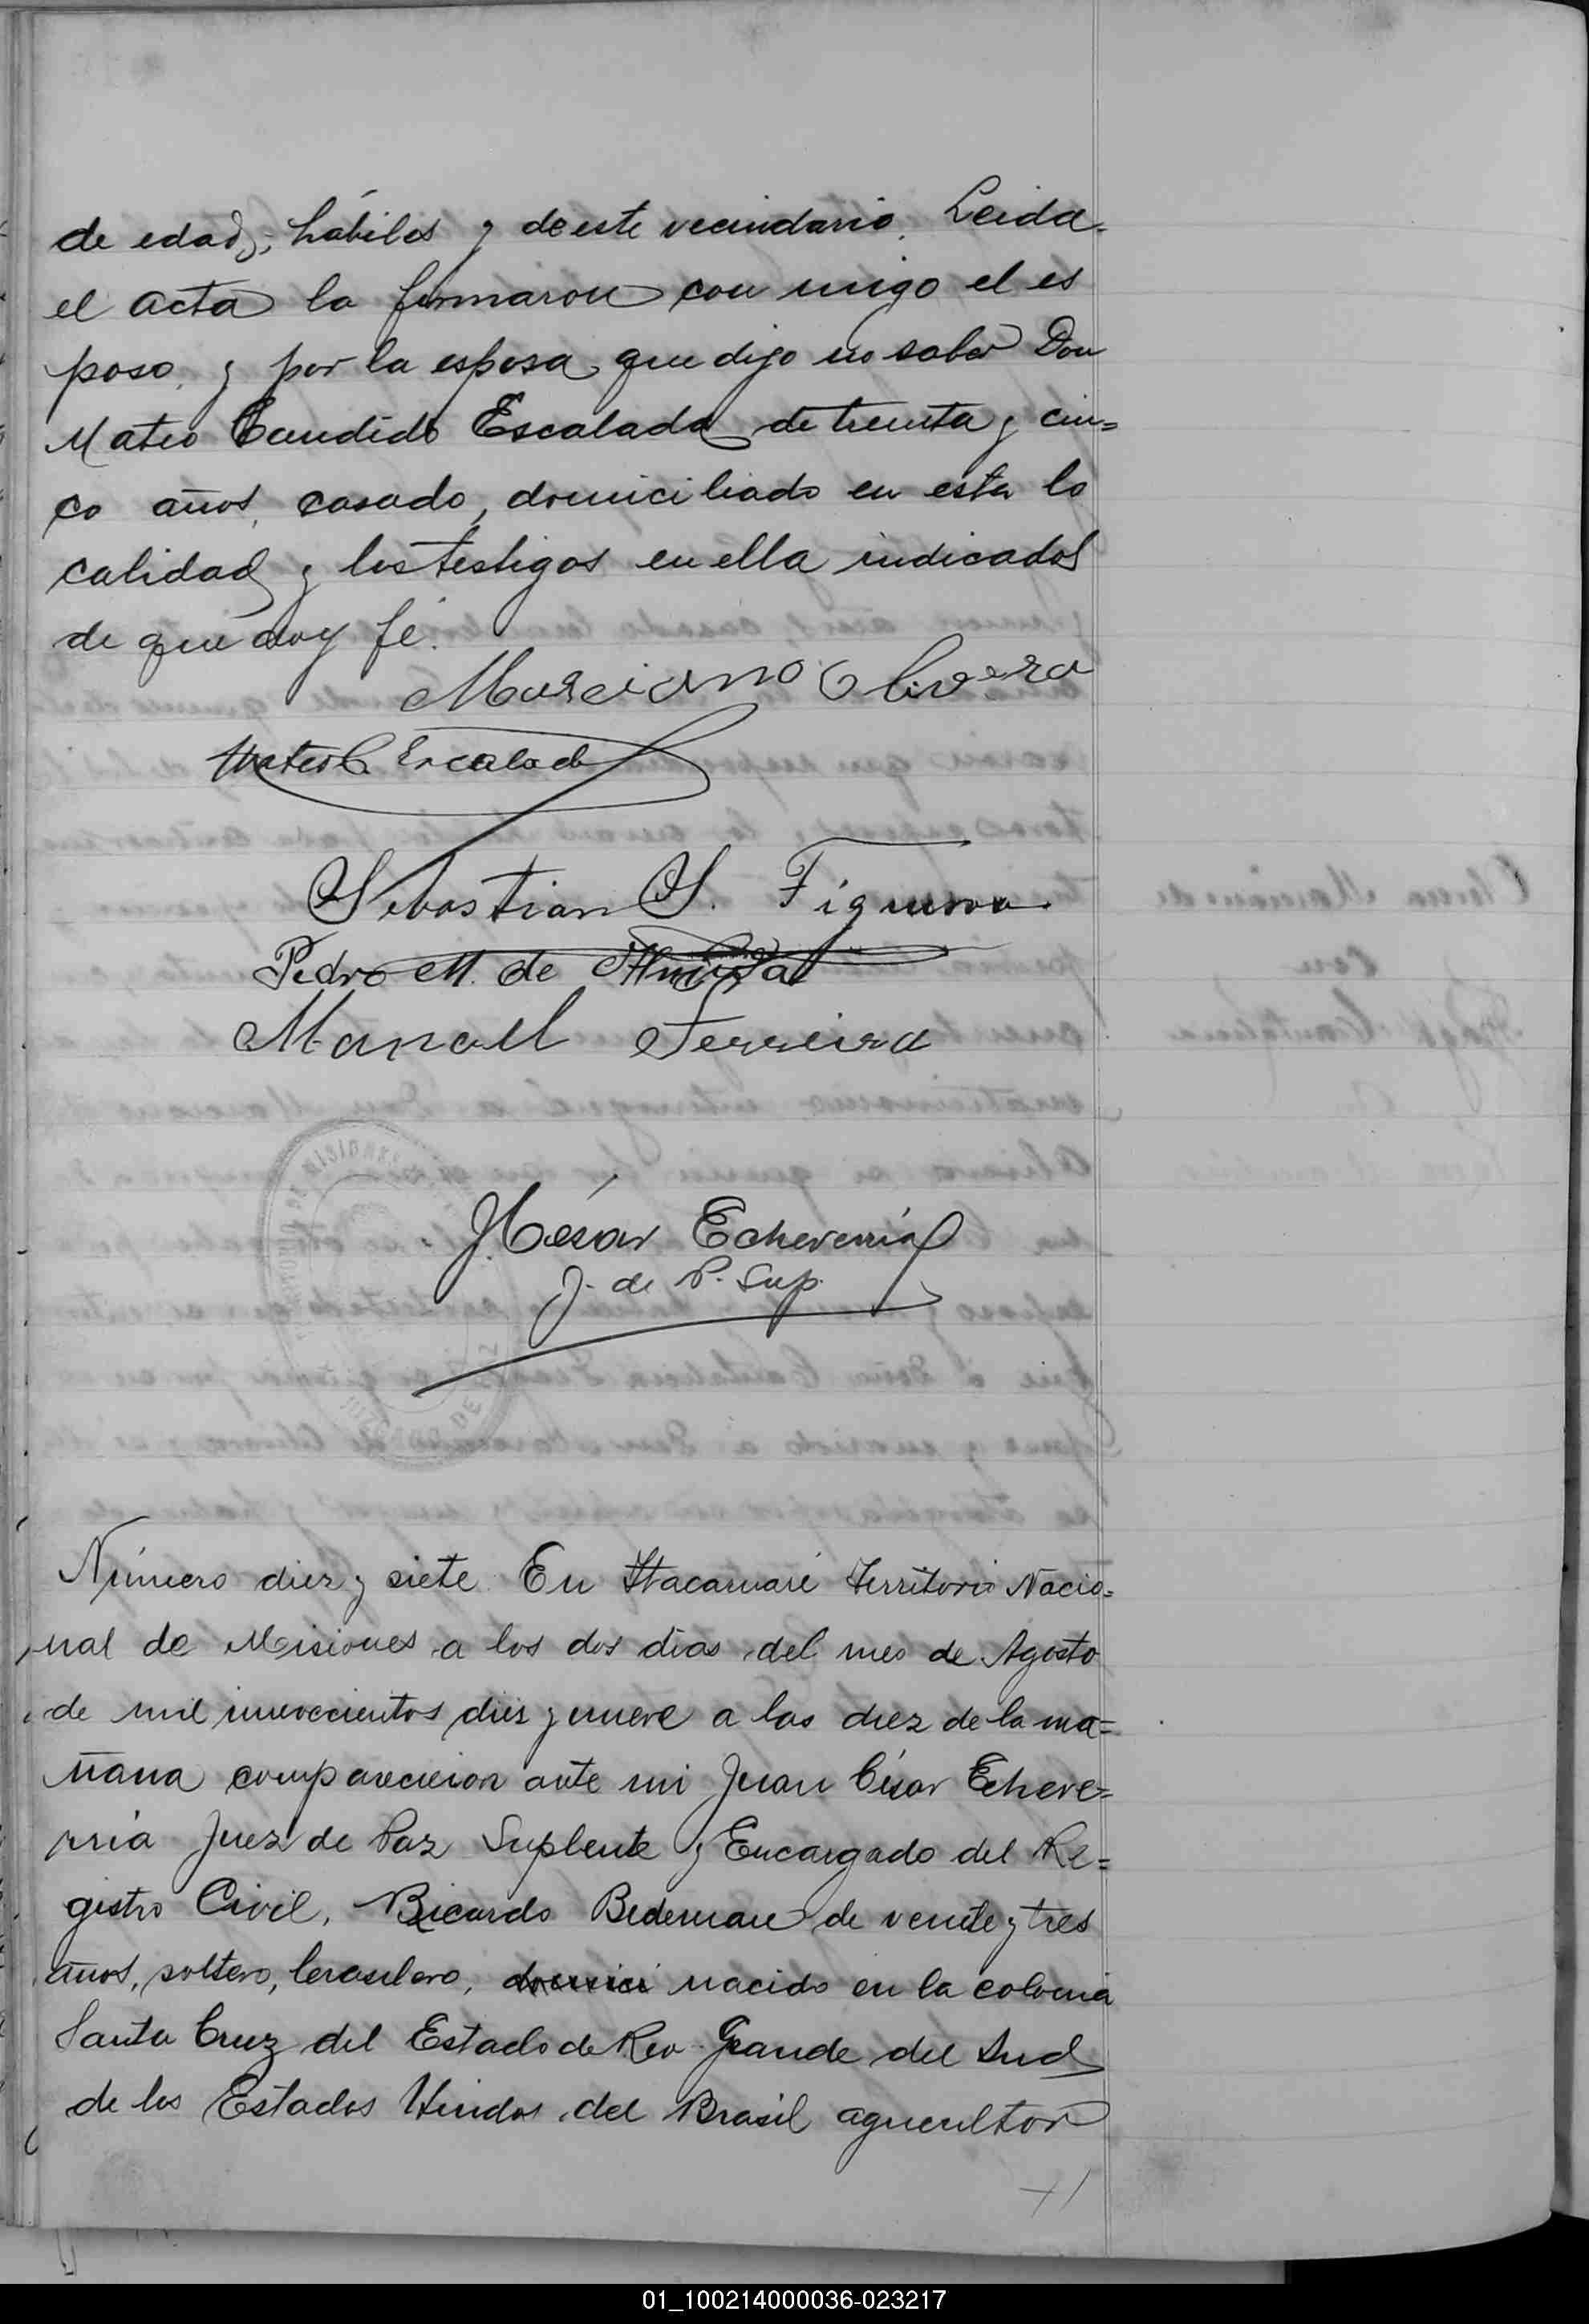 de edad, hábiles y de este vecindario. Leida
el acta la firmaron con migo el es
poso, y por la esposa que dijo no saber Don
Mateo Candido Escalada de treinta y cin=
co años, casado, domiciliado en esta lo
calidad y los testigos en ella indicados
de que doy fé.
Marciano Olivera
Mateo C. Escalada
Sebastian S. Figueroa
Pedro M. de Almeida
Manoel Ferreira
J. César Echeverría
J. de P. Sup.
Número diez y siete. En Itacaruaré Territorio Nacio=
nal de Misiones a los dos dias del mes de Agosto
de mil nuevecientos dies y nueve a las diez de la ma=
ñana comparecieron ante mi Juan César Echeve=
rria Juez de Paz Suplente y Encargado del Re=
gistro Civil, Ricardo Bedeman de veinte y tres
años, soltero, brasilero, nacido en la colonia
Santa Cruz del Estado de Rio Grande del Sud
de los Estados Unidos del Brasil agricultor
01_100214000036-023217